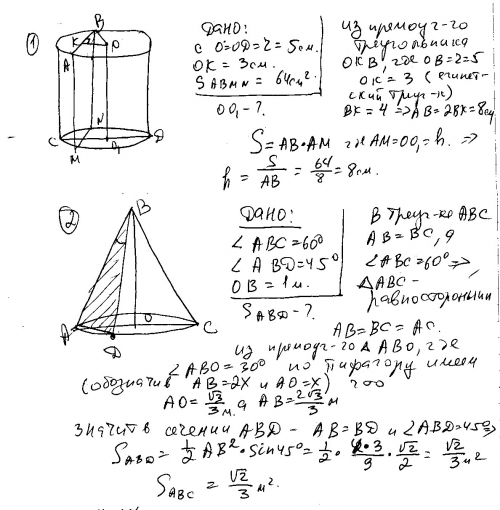 1
ДАНО:
СО=ОД=r=5см.
ОК=3см.
S ABMN = 64см².
OO₁-?
из прямоуг-го
треугольника
ОКВ, где ОВ=r=5
ОК=3 (египет-
ский треуг-к)
ВК=4 ⇒ АВ=2ВК=8см
S=AB·AM где AM=OO₁=h. ⇒
h = S/AB = 64/8 = 8см.
B
K
O
A
N
C
D
M
O₁
2
ДАНО:
∠ABC=60°
∠ABD=45°
OB=1м.
S ABD-?
В треуг-ке ABC
AB=BC, а
∠ABC=60° ⇒
△ABC-
равносторонний
AB=BC=AC.
B
A
O
C
D
из прямоуг-го △ABO, где
∠ABO=30° по пифагору имеем
(обозначив AB=2X и AO=X) что
AO=√3/3 м. а AB=2√3/3 м
значит в сечении ABD - AB=BD и ∠ABD=45° ⇒
S ABD = 1/2 AB²·sin45° = 1/2 · 4·3/9 · √2/2 = √2/3 м²
S ABC = √2/3 м².